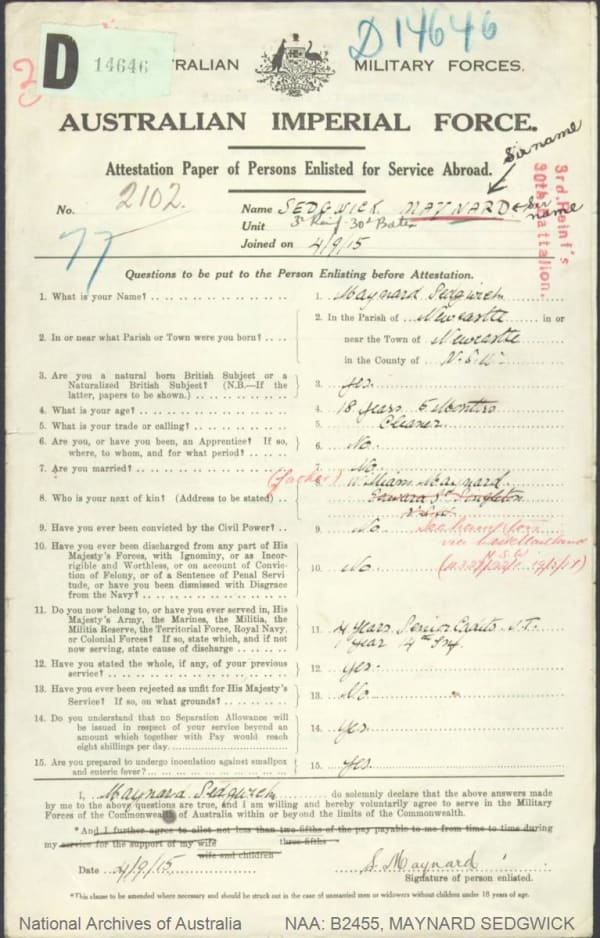 D 14646
D 14646
AUSTRALIAN MILITARY FORCES.
AUSTRALIAN IMPERIAL FORCE.
Attestation Paper of Persons Enlisted for Service Abroad.
Sirname
3rd. Reinf's
30th Battalion.
No. 2102.
77
Name SEDGWICK MAYNARD Sir name
Unit 3rd Reinf 30th Battn
Joined on 4/9/15
Questions to be put to the Person Enlisting before Attestation.
1. What is your Name? 1. Maynard Sedgwick
2. In or near what Parish or Town were you born? 2. In the Parish of Newcastle in or
near the Town of Newcastle
in the County of N.S.W.
3. Are you a natural born British Subject or a
Naturalized British Subject? (N.B.—If the
latter, papers to be shown.) 3. yes.
4. What is your age? 4. 18 years 6 Months
5. What is your trade or calling? 5. Cleaner
6. Are you, or have you been, an Apprentice? If so,
where, to whom, and for what period? 6. No.
7. Are you married? 7. No.
8. Who is your next of kin? (Address to be stated) (father) 8. William Maynard
Edward St Singleton
N.S.W.
9. Have you ever been convicted by the Civil Power? 9. No
10. Have you ever been discharged from any part of His
Majesty's Forces, with Ignominy, or as Incor-
rigible and Worthless, or on account of Convic-
tion of Felony, or of a Sentence of Penal Servi-
tude, or have you been dismissed with Disgrace
from the Navy? 10. No
via West Maitland
N.S.W.
11. Do you now belong to, or have you ever served in, His
Majesty's Army, the Marines, the Militia, the
Militia Reserve, the Territorial Force, Royal Navy,
or Colonial Forces? If so, state which, and if not
now serving, state cause of discharge 11. 4 years Senior Cadets
1 year 14th Inf.
12. Have you stated the whole, if any, of your previous
service? 12. yes.
13. Have you ever been rejected as unfit for His Majesty's
Service? If so, on what grounds? 13. No
14. Do you understand that no Separation Allowance will
be issued in respect of your service beyond an
amount which together with Pay would reach
eight shillings per day. 14. yes.
15. Are you prepared to undergo inoculation against smallpox
and enteric fever? 15. yes.
I, Maynard Sedgwick do solemnly declare that the above answers made
by me to the above questions are true, and I am willing and hereby voluntarily agree to serve in the Military
Forces of the Commonwealth of Australia within or beyond the limits of the Commonwealth.
*And I further agree to allot not less than two-fifths of the pay payable to me from time to time during
my service for the support of my wife three-fifths
wife and children
Date 4/9/15 S. Maynard
Signature of person enlisted.
*This clause to be amended where necessary and should be struck out in the case of unmarried men or widowers without children under 18 years of age.
National Archives of Australia NAA: B2455, MAYNARD SEDGWICK